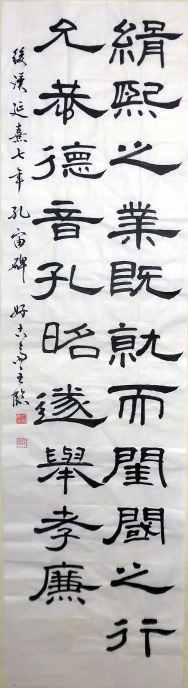 緝熙之業既就而閨閾之行
允恭德音孔昭遂舉孝廉
後漢延熹七年 孔宙碑 好古